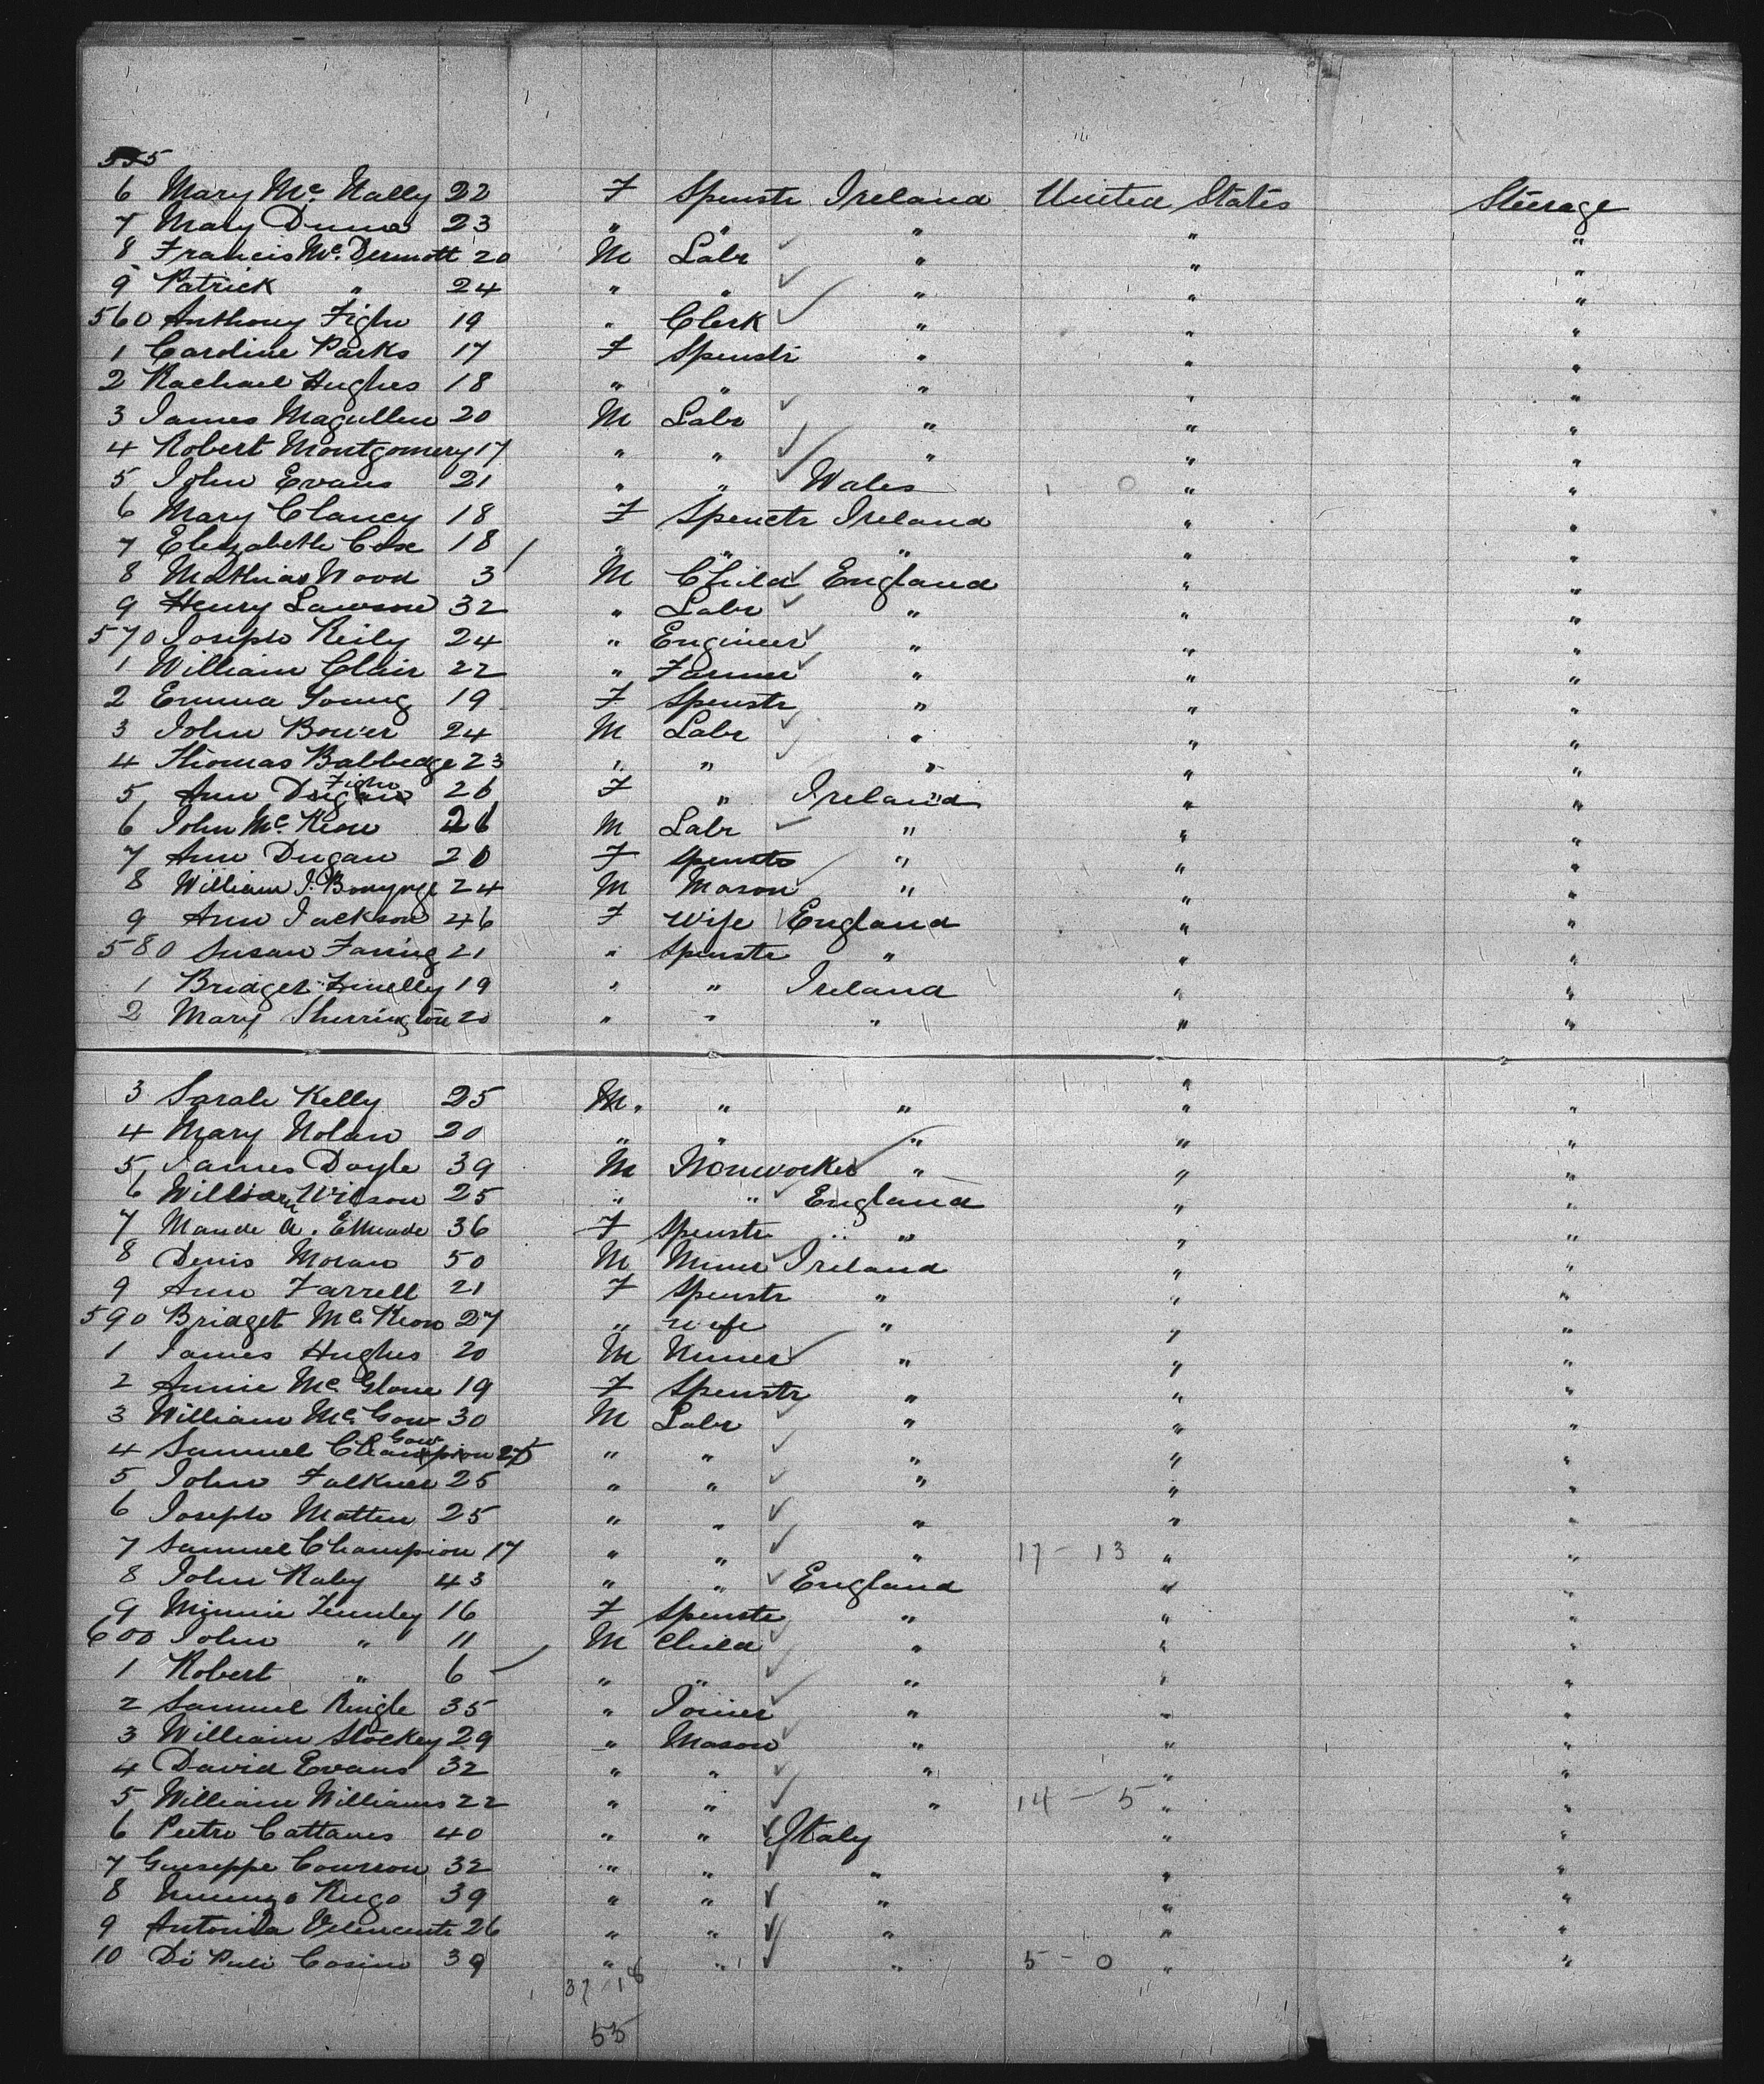 555
6 Mary Mc. Nally 22 F Spenstr Ireland United States Steerage
7 Mary Dunne 23 " " " " "
8 Francis Mc. Dermott 20 M Labr " " "
9 Patrick " 24 " " " " "
560 Anthony Fighr 19 " Clerk " " "
1 Caroline Parks 17 F Spenstr " " "
2 Rachael Hughes 18 " " " " "
3 James Magullen 20 M Labr " " "
4 Robert Montgomery 17 " " " " "
5 John Evans 21 " " Wales 1 0 " "
6 Mary Clancy 18 F Spenstr Ireland " "
7 Elizabeth Cox 18 " " " " "
8 Mathias Wood 3 M Child England " "
9 Henry Lawson 32 " Labr " " "
570 Joseph Reily 24 " Engineer " " "
1 William Clair 22 " Farmer " " "
2 Emma Young 19 F Spenstr " " "
3 John Bower 24 M Labr " " "
4 Thomas Babbedge 23 " " " " "
5 Ann Fighr 26 F " Ireland " "
6 John Mc. Keon 26 M Labr " " "
7 Ann Dugan 20 F Spenstr " " "
8 William J. 24 M Mason " " "
9 Ann Jackson 46 F Wife England " "
580 Susan Faring 21 " Spenstr " " "
1 Bridget Finelly 19 " " Ireland " "
2 Mary Sherrington 20 " " " " "
3 Sarah Kelly 25 M. " " " "
4 Mary Nolan 20 " " " " "
5 James Doyle 39 M Ironworker " " "
6 William Wilson 25 " " England " "
7 Maude A. 36 F Spenstr " " "
8 Denis Moran 50 M Miner Ireland " "
9 Ann Farrell 21 F Spenstr " " "
590 Bridget Mc Keon 27 " Wife " " "
1 James Hughes 20 M Miner " " "
2 Annie Mc. Glone 19 F Spenstr " " "
3 William Mc. Gow 30 M Labr " " "
4 Samuel Champion Gow " " " " "
5 John Falkner 25 " " " " "
6 Joseph Matten 25 " " " " "
7 Samuel Champion 17 " " " 17 - 13 " "
8 John Raby 43 " " England " "
9 Minnie 16 F Spenstr " " "
600 John " 11 M Child " " "
1 Robert " 6 " " " " "
2 Samuel Ringle 35 " Joiner " " "
3 William Stockey 29 " Mason " " "
4 David Evans 32 " " " " "
5 William Williams 22 " " " 14 - 5 " "
6 Pietro Cattanes 40 " " Italy " "
7 Guiseppe 32 " " " " "
8 Rugo 39 " " " " "
9 Antonia 26 " " " " "
10 Di Puli Cosimo 39 " " " 5 - 0 " "
37 18
55